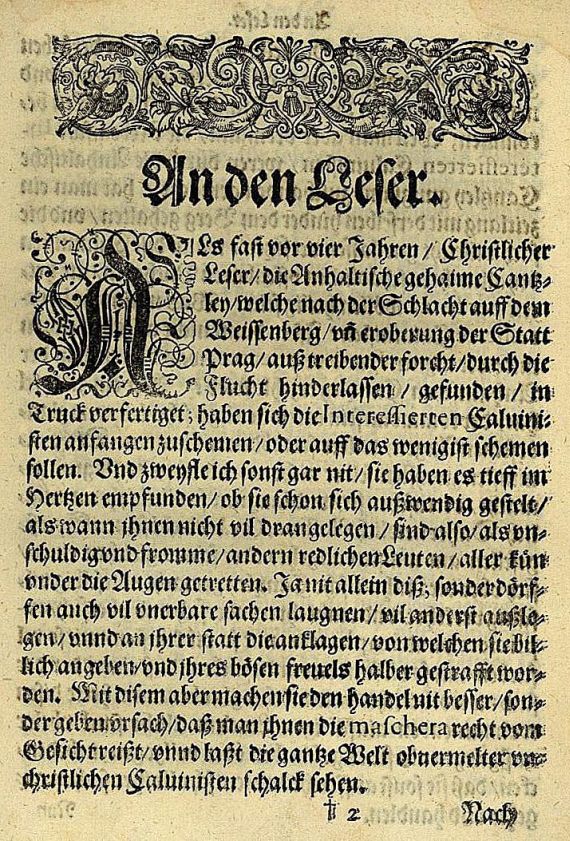 An den Leser.
ALs fast vor vier Jahren / Christlicher
Leser / die Anhaltische gehaime Cantz⸗
ley / welche nach der Schlacht auff dem
Weissenberg / vñ eroberung der Statt
Prag / auß treibender forcht / durch die
Flucht hinderlassen / gefunden / in
Truck verfertiget; haben sich die Interessierten Caluini⸗
sten anfangen zuschemen / oder auff das wenigist schemen
sollen. Vnd zweyfle ich sonst gar nit / sie haben es tieff im
Hertzen empfunden / ob sie schon sich außwendig gestelt /
als wann jhnen nicht vil drangelegen / sind also / als vn⸗
schuldig vnd fromme / andern redlichen Leuten / aller kün
vnder die Augen getretten. Ja nit allein diß; sonder dörf⸗
fen auch vil vnerbare sachen laugnen / vil anderst außle⸗
gen / vnnd an jhrer statt die anklagen / von welchen sie bil⸗
lich angeben / vnd jhres bösen freuels halber gestrafft wor⸗
den. Mit disem aber machen sie den handel nit besser / son⸗
der geben vrsach / daß man jhnen die maschera recht vom
Gesicht reißt / vnnd laßt die gantze Welt obuermelter vn⸗
christlichen Caluinisten schalck sehen.
† 2 Nach